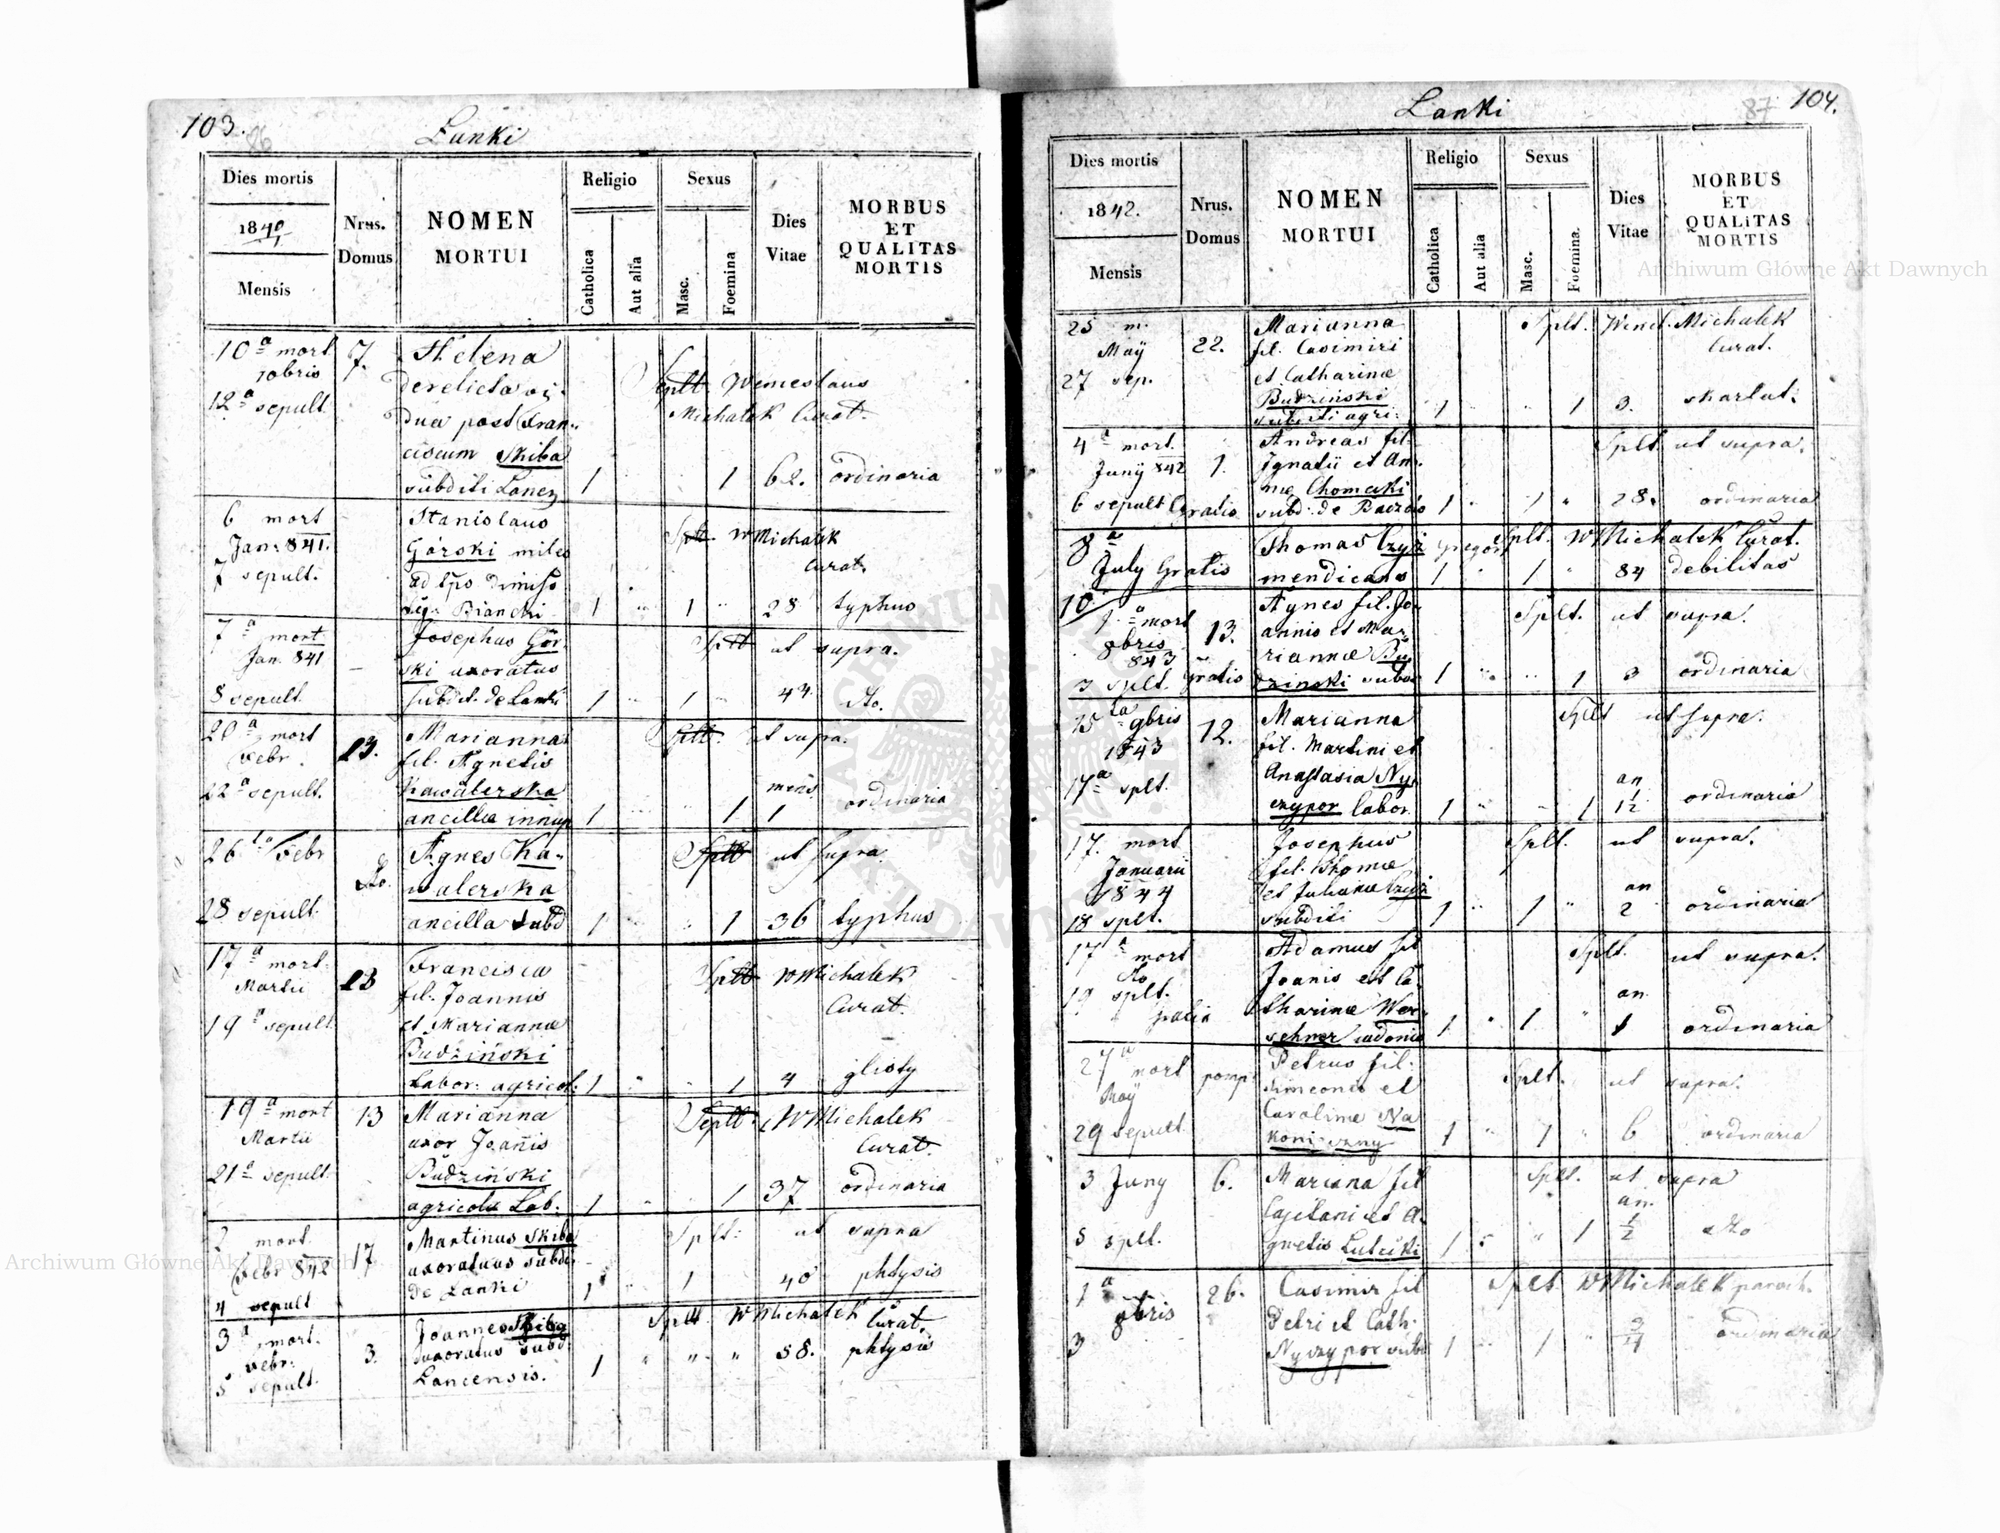 103.
86
Lanki
Dies mortis
1840/1
Mensis
Nrus.
Domus
NOMEN
MORTUI
Religio
Catholica
Aut alia
Sexus
Masc.
Foemina
Dies
Vitae
MORBUS
ET
QUALITAS
MORTIS
10ª mort 7. Helena
10bris derelicta vi-
Seplt. Wenceslaus
12ª sepult. dua post Fran-
Michalek Curat.
ciscum Skiba
subditi 1 1 62. ordinaria
6 mort Stanislaus
Jan: 841. Górski miles
Splt. W Michalek
Curat.
7 sepult.
Bianchi 1 1 28 typhus
7ª mort Josephus Gór-
Jan. 841 ski uxoratus
Splt ut supra.
8 sepult. subdit. de Lanki 1 1 44. dto.
20ª mort 13. Marianna
Febr. fil. Agnetis
Splt. ut supra.
22ª sepult. Kawalerska mens
ancillae innup 1 1 1 ordinaria
26 Febr dto. Agnes Ka-
walerska
Splt ut supra
28 sepult. ancilla subd 1 1 36 typhus
17ª mort. 13 Francisca
Martii fil. Joannis
Splt W Michalek
Curat.
19ª sepult. et Mariannae
Budziński
Labor: agricol: 1 1 4 glisty
19ª mort 13 Marianna
Martii uxor Joañis
Seplt. W Michalek
Curat.
21ª sepult. Budziński
agricola Lab. 1 1 37 ordinaria
2 mort. 17 Martinus Skiba
Febr 842 uxoratus subdi.
Splt: ut supra
4 sepult de Lanki 1 1 40 phtysis
3ª mort. 3. Joannes Skiba
Febr. uxoratus subd
Splt W Michalek Curat.
5 sepult. Lancensis. 1 58. phtysis
Lanki
87
104.
Dies mortis
1842.
Mensis
Nrus.
Domus
NOMEN
MORTUI
Religio
Catholica
Aut alia
Sexus
Masc.
Foemina.
Dies
Vitae
MORBUS
ET
QUALITAS
MORTIS
25 m. 22. Marianna
Maÿ fil. Casimiri
Splt. Wencl. Michalek
Curat.
27 sep. et Catharinae
Budziński
subditi agri: 1 1 3. skarlat:
4ª mort. 1. Andreas fil.
Junÿ 842 Ignatii et An-
Splt ut supra.
6 sepult Gratis nae Chomicki
subd: de 1 1 28. ordinaria
8ª Thomas Czyż
Splt. W Michalek Curat.
July Gratis mendicans 1 1 84 debilitas
10
1ª mort 13. Agnes fil. Jo-
8bris annis et Ma-
843 riannae Bu-
Splt. ut supra.
3 splt. Gratis dzinski subd 1 1 3 ordinaria
15ta 9bris 12. Marianna
1843 fil. Martini et
Splt ut supra.
17ª splt. Anastasia Ny-
czypor labor 1 1 an 1/12 ordinaria
17. mort Josephus
Januarii fil. Thomae
Splt. ut supra.
1844 et Julianae Czyż
18 splt. subditi 1 1 an 2 ordinaria
17ª mort Adamus fil
dto Joanis et Ca-
Splt. ut supra.
19 splt. tharinae Wer-
gratis 1 1 an. 1 ordinaria
27ª mort Petrus fil.
Maÿ Simeonis et
Splt. ut supra.
29 sepult. Carolinae Na
koniczny 1 1 6 ordinaria
3 Juny 6. Mariana fil
Cajetani et A-
Splt. ut supra
5 splt. gnetis 1 1 an. 1/2 dto
1ª 8bris 26. Casimir fil
Petri et Cath.
Splt. W Michalek paroch.
3 Nyczypor subd 1 1 ordinaria
Archiwum Główne Akt Dawnych
Archiwum Główne Akt Dawnych
ARCHIWUM GŁÓWNE AKT DAWNYCH